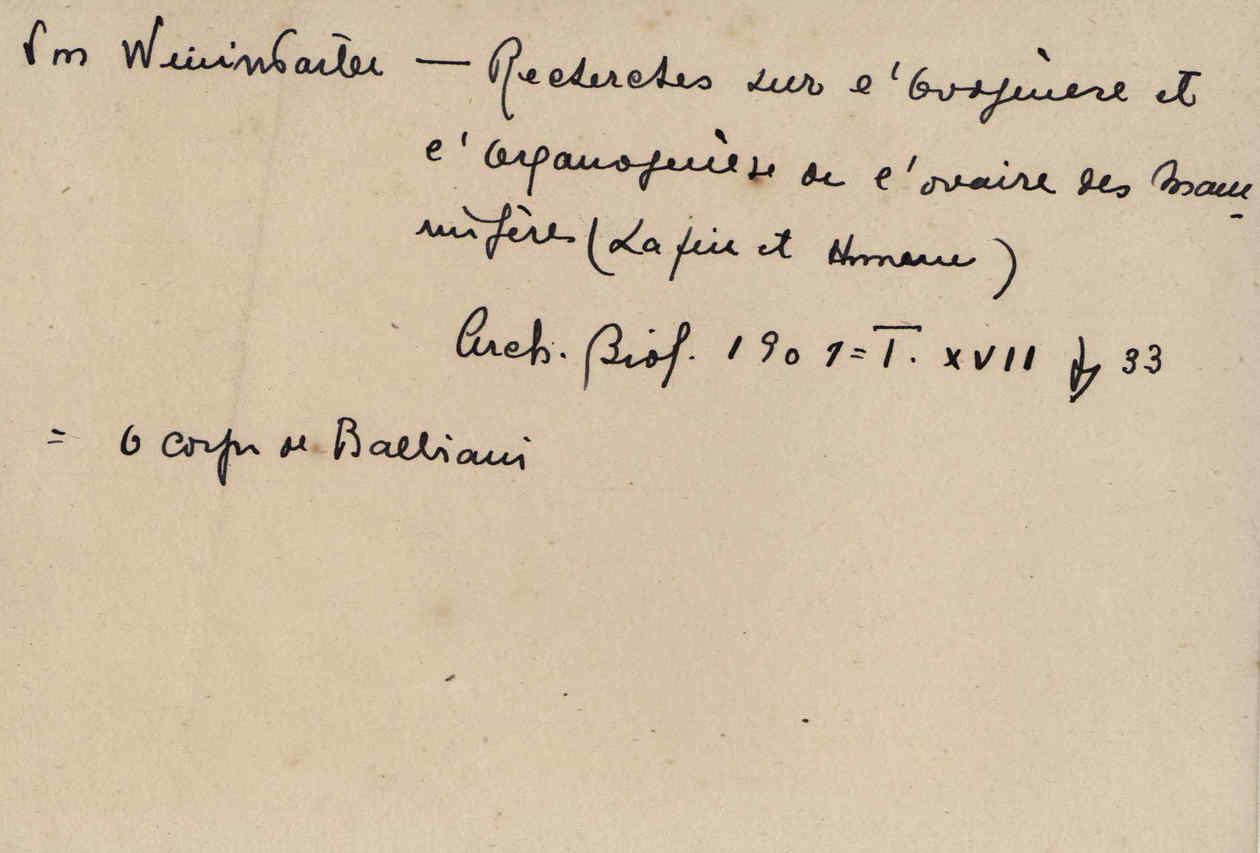 Von Winiwarter — Recherches sur l'Ovogénèse et
l'Organogénèse de l'ovaire des Mam-
mifères (Lapin et Homme)
Arch. Biol. 1901 = T. XVII p 33
= O corps de Balbiani